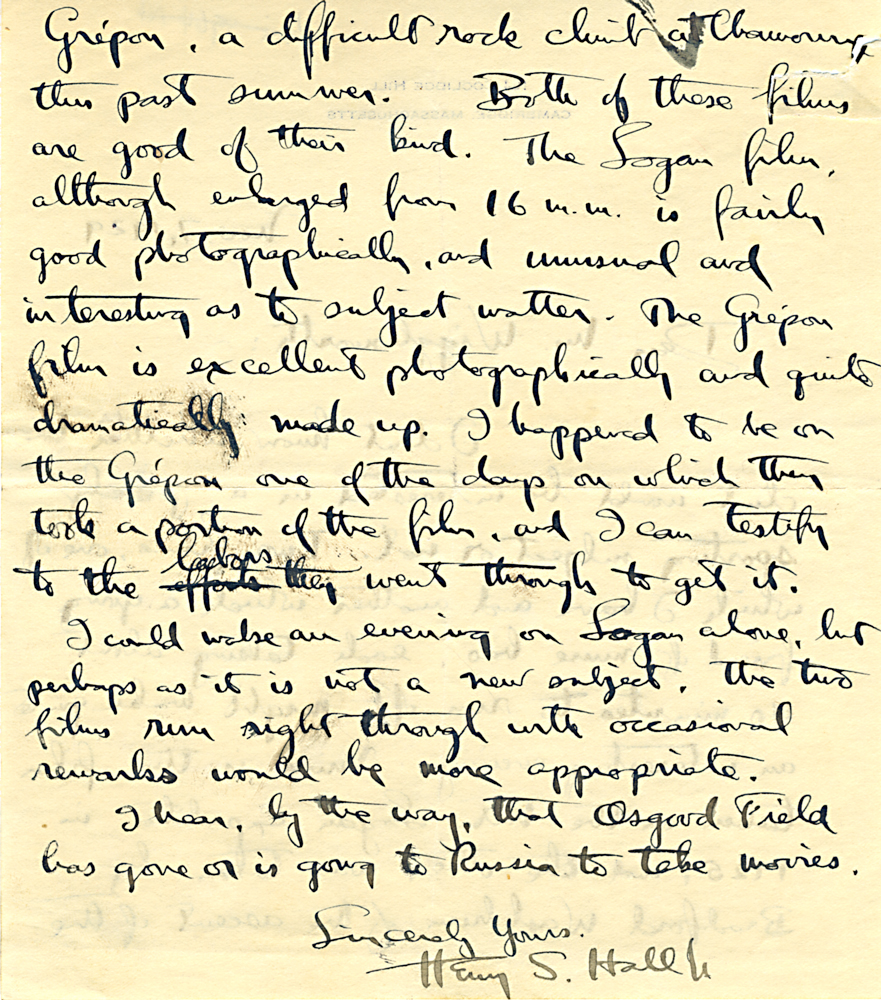 Grépon, a difficult rock climb at Chamounix
this past summer. Both of these films
are good of their kind. The Logan film,
although enlarged from 16 m.m. is fairly
good photographically, and unusual and
interesting as to subject matter. The Grépon
film is excellent photographically and quite
dramatically made up. I happened to be on
the Grépon one of the days on which they
took a portion of the film, and I can testify
labors
to the efforts they went through to get it.
I could make an evening on Logan alone, but
perhaps as it is not a new subject, the two
films run right through with occasional
remarks would be more appropriate.
I hear, by the way, that Osgood Field
has gone or is going to Russia to take movies.
Sincerely Yours.
Henry S. Hall Jr